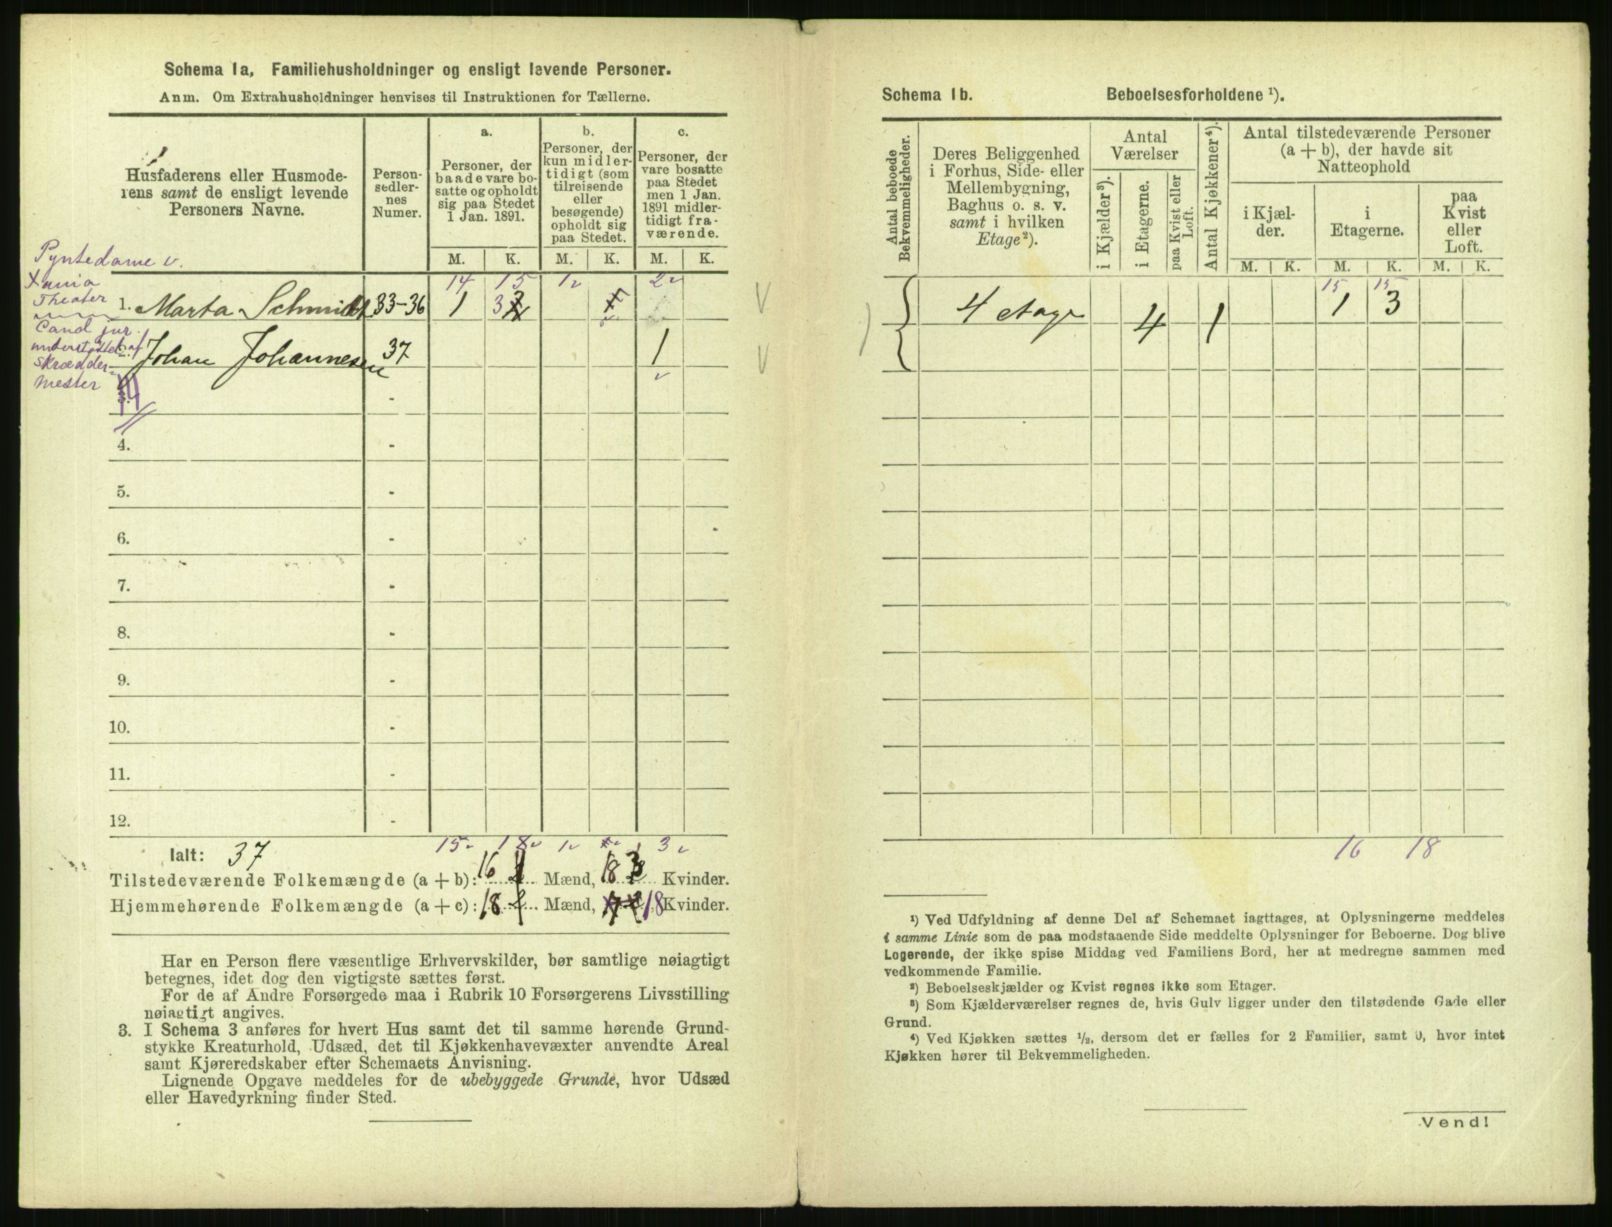 Schema 1a, Familiehusholdninger og ensligt levende Personer.
Anm. Om Extrahusholdninger henvises til Instruktionen for Tællerne.
Husfaderens eller Husmode-
rens samt de ensligt levende
Personers Navne.
Person-
sedler-
nes
Numer.
a.
Personer, der
baade vare bo-
satte og opholdt
sig paa Stedet
1 Jan. 1891.
b.
Personer, der
kun midler-
tidigt (som
tilreisende
eller
besøgende)
opholdt sig
paa Stedet.
c.
Personer, der
vare bosatte
paa Stedet
men 1 Jan.
1891 midler-
tidigt fra-
værende.
M. K. M. K. M. K.
14 15 1 2
Pyntedame v.
Theater
1. Marta Schmidt 33-36 1 3
Cand jur.
understøttet af
Skrædder-
mester
Johan Johannesen 37 1
4.
5.
6.
7.
8.
9.
10.
11.
12.
Ialt: 37 15 18 1 3
Tilstedeværende Folkemængde (a + b): 16 Mænd, 18 Kvinder.
Hjemmehørende Folkemængde (a + c): 18 Mænd, 18 Kvinder.
Har en Person flere væsentlige Erhvervskilder, bør samtlige nøiagtigt
betegnes, idet dog den vigtigste sættes først.
For de af Andre Forsørgede maa i Rubrik 10 Forsørgerens Livsstilling
nøiagtigt angives.
3. I Schema 3 anføres for hvert Hus samt det til samme hørende Grund-
stykke Kreaturhold, Udsæd, det til Kjøkkenhavevæxter anvendte Areal
samt Kjøreredskaber efter Schemaets Anvisning.
Lignende Opgave meddeles for de ubebyggede Grunde, hvor Udsæd
eller Havedyrkning finder Sted.
Schema 1b. Beboelsesforholdene ¹).
Antal beboede
Bekvemmeligheder.
Deres Beliggenhed
i Forhus, Side- eller
Mellembygning,
Baghus o. s. v.
samt i hvilken
Etage²).
Antal
Værelser
i Kjælder³).
i Etagerne.
paa Kvist eller
Loft.
Antal Kjøkkener⁴).
Antal tilstedeværende Personer
(a + b), der havde sit
Natteophold
i Kjæl-
der.
i
Etagerne.
paa
Kvist
eller
Loft.
M. K. M. K. M. K.
15 15
4 etage 4 1 1 3
16 18
¹) Ved Udfyldning af denne Del af Schemaet iagttages, at Oplysningerne meddeles
i samme Linie som de paa modstaaende Side meddelte Oplysninger for Beboerne. Dog blive
Logerende, der ikke spise Middag ved Familiens Bord, her at medregne sammen med
vedkommende Familie.
²) Beboelseskjælder og Kvist regnes ikke som Etager.
³) Som Kjælderværelser regnes de, hvis Gulv ligger under den tilstødende Gade eller
Grund.
⁴) Ved Kjøkken sættes ½, dersom det er fælles for 2 Familier, samt 0, hvor intet
Kjøkken hører til Bekvemmeligheden.
Vend!